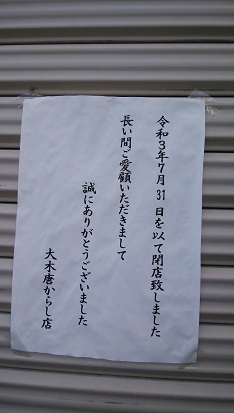 令和３年７月31日を以て閉店致しました
長い間ご愛顧いただきまして
誠にありがとうございました
大木唐からし店